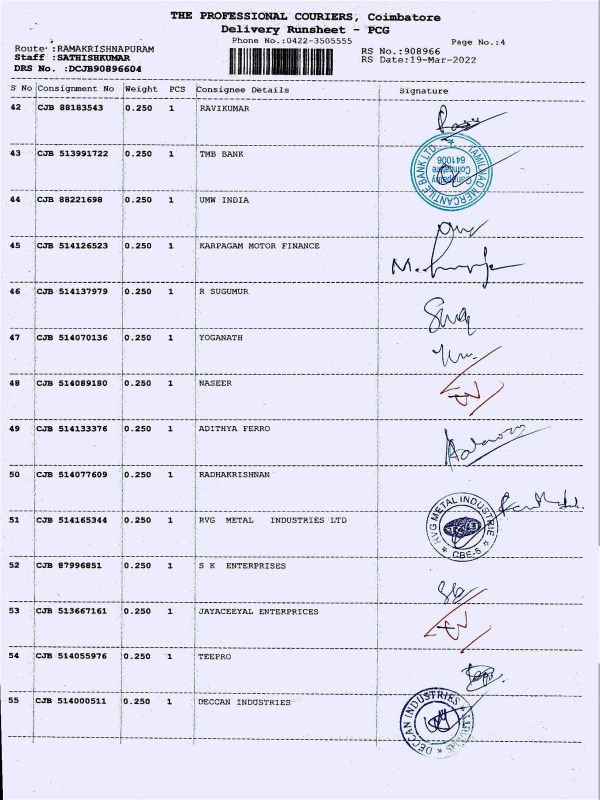 THE PROFESSIONAL COURIERS, Coimbatore
Delivery Runsheet - PCG
Phone No.:0422-3505555 Page No.:4
Route :RAMAKRISHNAPURAM RS No.:908966
Staff :SATHISHKUMAR RS Date:19-Mar-2022
DRS No. :DCJB90896604
S No Consignment No Weight PCS Consignee Details Signature
42 CJB 88183543 0.250 1 RAVIKUMAR
43 CJB 513991722 0.250 1 TMB BANK
TAMILNAD MERCANTILE BANK LTD.
Coimbatore
641006
44 CJB 88221698 0.250 1 UMW INDIA
45 CJB 514126523 0.250 1 KARPAGAM MOTOR FINANCE
46 CJB 514137979 0.250 1 R SUGUMUR
47 CJB 514070136 0.250 1 YOGANATH
48 CJB 514089180 0.250 1 NASEER
49 CJB 514133376 0.250 1 ADITHYA FERRO
50 CJB 514077609 0.250 1 RADHAKRISHNAN
51 CJB 514165344 0.250 1 RVG METAL INDUSTRIES LTD
RVG METAL INDUSTRIE
CBE-6
52 CJB 87996851 0.250 1 S K ENTERPRISES
53 CJB 513667161 0.250 1 JAYACEEYAL ENTERPRICES
54 CJB 514055976 0.250 1 TEEPRO
55 CJB 514000511 0.250 1 DECCAN INDUSTRIES
DECCAN INDUSTRIES